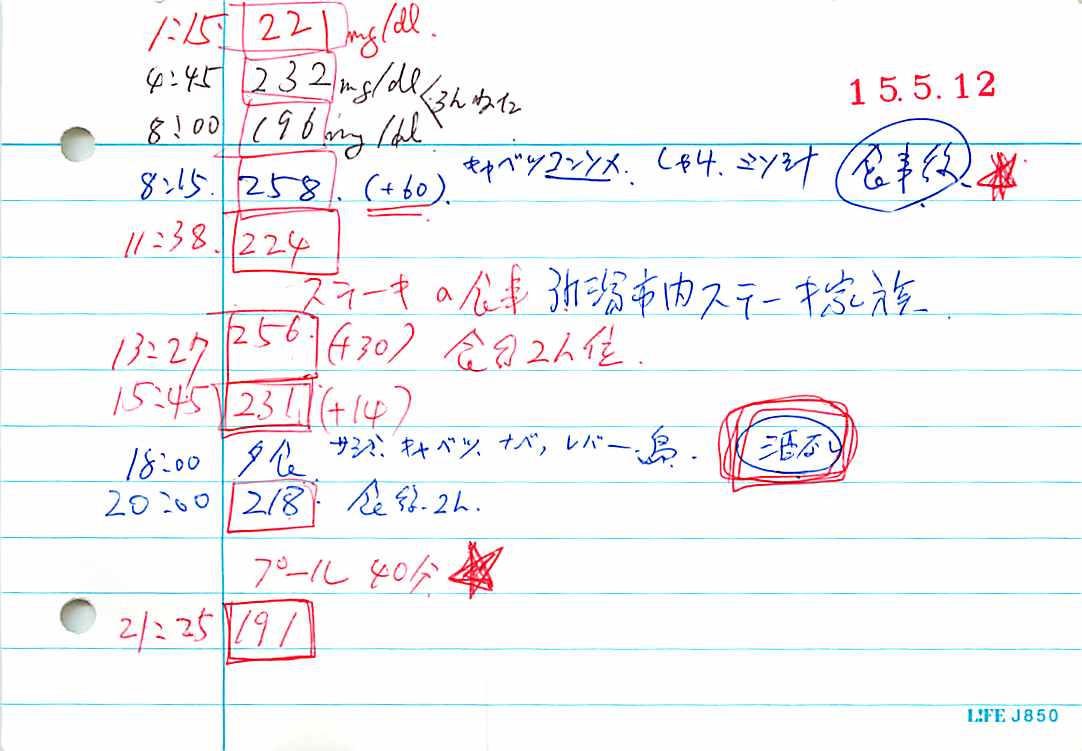 1:15 221 mg/dl.
4:45 232 mg/dl
15.5.12
8:00 196 mg/dl
8:15. 258. (+60). キャベツコンソメ. ミソ汁 食事後
11:38. 224
ステーキの食事 新潟市内ステーキ
13:27 256. (+30) 食
15:45 231 (+14)
18:00 夕食 サシミ、キャベツ、ナベ, レバー. 酒なし
20:00 218. 食後. 2h.
プール 40分
21:25 191
LIFE J850